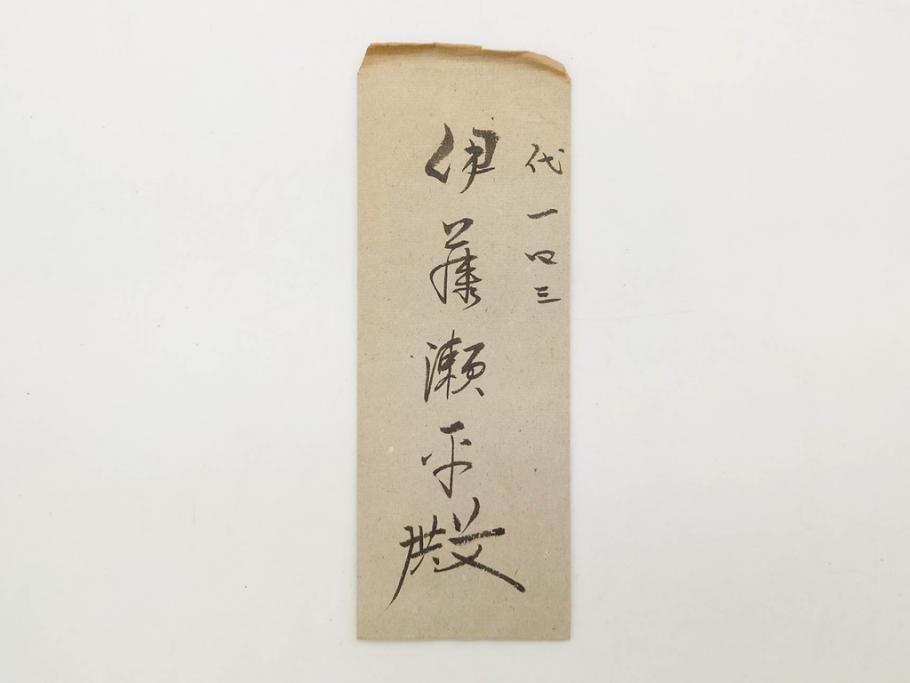 代一口三
伊藤瀬平殿